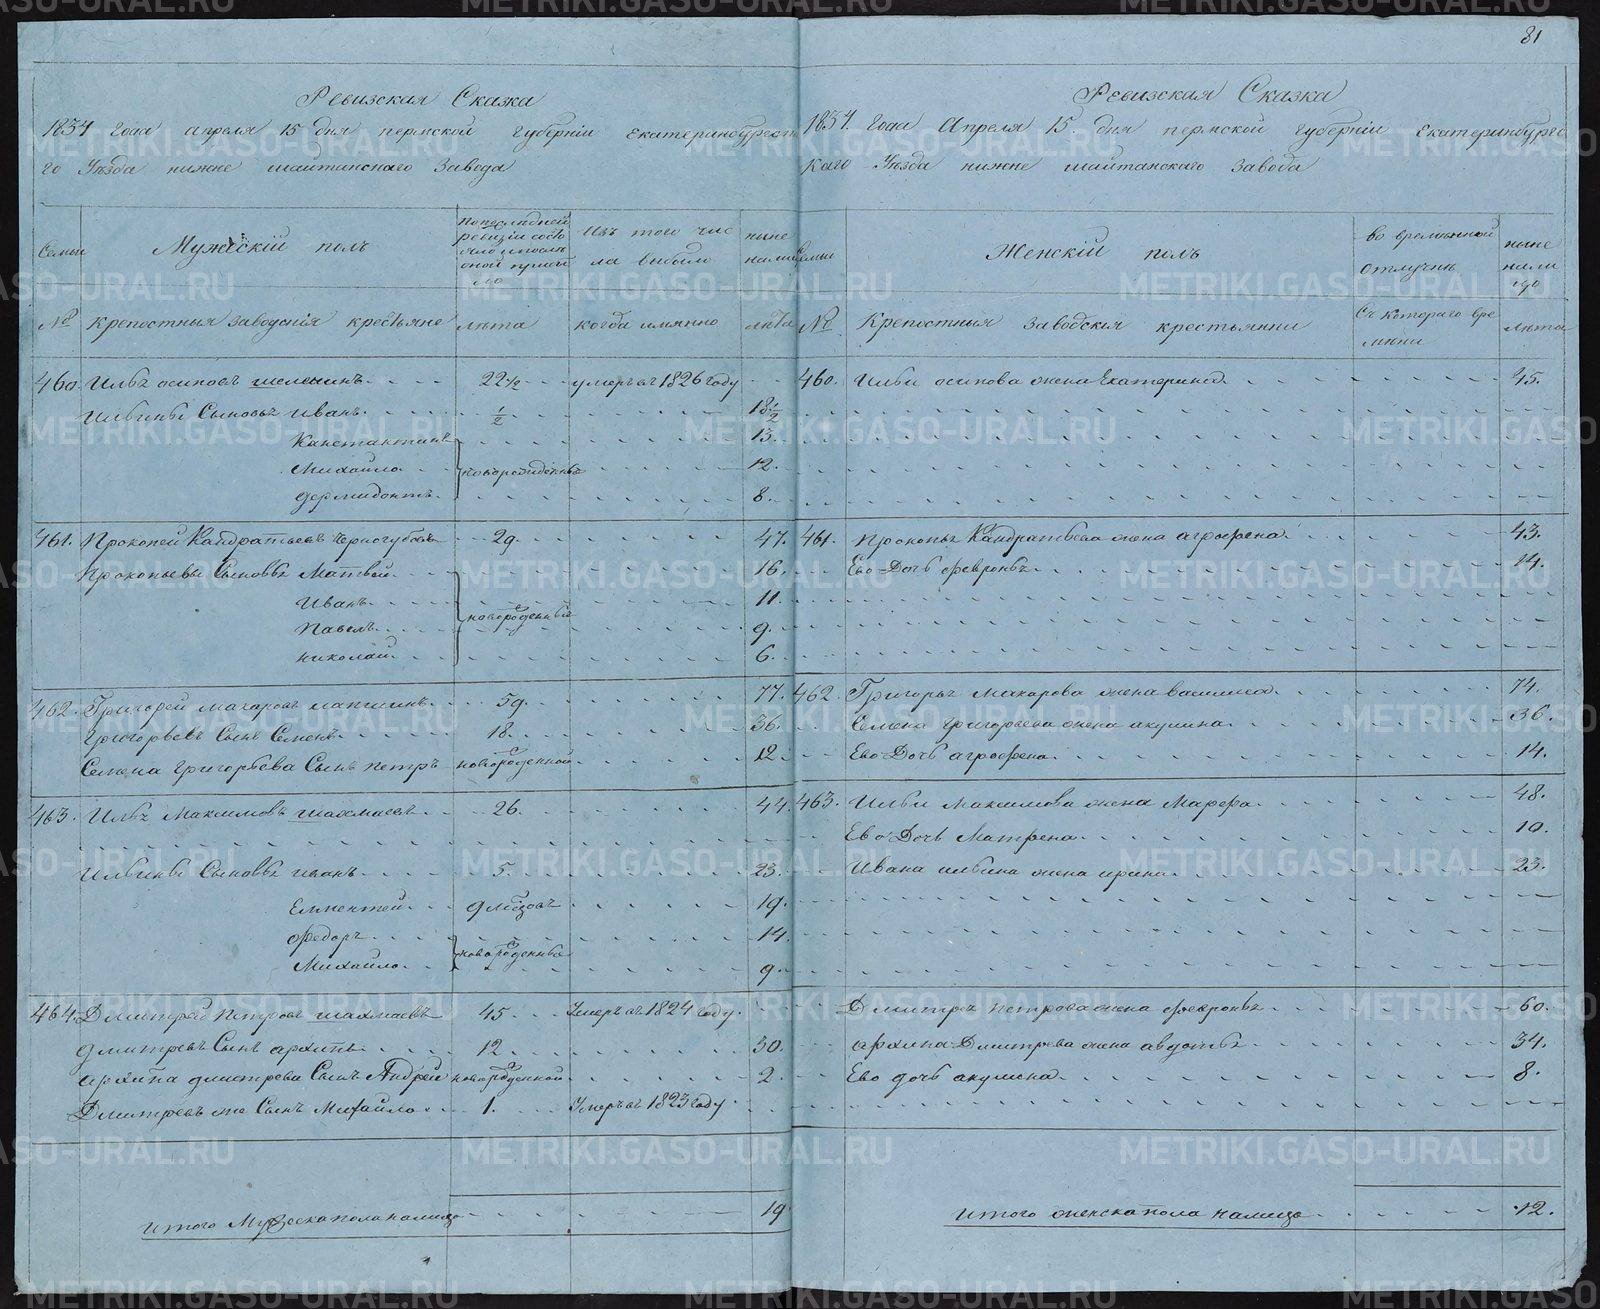 81
Ревизская Сказка
1834 года апреля 15 дня пермской губерніи Екатеринбургско
го Уезда нижне шайтанскаго Завода
Семьи
Мужескій полъ
По последней ревизіи состояло и после оной прибыло
Изъ того числа выбыло
ныне налицо
№
Крепостныя заводскія крестьяне
лѣта
когда имянно
лѣта
460. Илья осиповъ шеленинъ 22½ умеръ въ 1826 году
Ильины Сыновья иванъ ½ 18½
Канстантинъ 13.
Михайло новорожденныя 12.
дермидонтъ 8.
461. Прокопей Кандратьевъ Черногубовъ 29. 47.
Прокопьевы Сыновья Матвей 16.
Иванъ новорожденныя 11.
Павелъ 9.
Николай 6.
462. Григорей макаровъ лапшинъ 59. 77.
Григорьевъ Сынъ Семенъ 18. 36.
Семена Григорьева Сынъ петръ новорожденной 12
463. Илья Максимовъ шахмаевъ 26. 44.
Ильины Сыновья иванъ 5. 23.
Елментей 9 месяцовъ 19.
Федоръ новорожденныя 14.
Михайло 9.
464. Дмитрей петровъ шахмаевъ 45 Умеръ въ 1824 году
дмитревъ Сынъ архипъ 12 30.
архипа дмитрева Сынъ Андрей новорожденной 2.
Дмитревъ же Сынъ Михайло 1. Умеръ въ 1823 году
итого Мужеска пола налицо 19
Ревизская Сказка
1834. года Апреля 15. дня пермской губерніи Екатеринбургс
каго Уезда нижне шайтанскаго завода
Семьи
Женскій полъ
во временной отлучке
ныне налицо
№
Крепостныя заводскія крестьянки
Съ котораго времени
лѣта
460. Ильи осипова жена Екатерина 45.
461. прокопья Кандратьева жена агрофена 43.
Ево Дочь февронья 14.
462. Григорья макарова жена василиса 74.
Семена григорьева жена акулина 36.
Ево Дочь агрофена 14.
463. Ильи Максимова жена Марфа 48.
Ево Дочь Матрена 10.
Ивана ильина жена ирина 23.
Дмитрея петрова жена февронья 60.
архипа Дмитрева жена авдотья 34.
Ево дочь акулина 8.
итого женска пола налицо 12.
METRIKI.GASO-URAL.RU